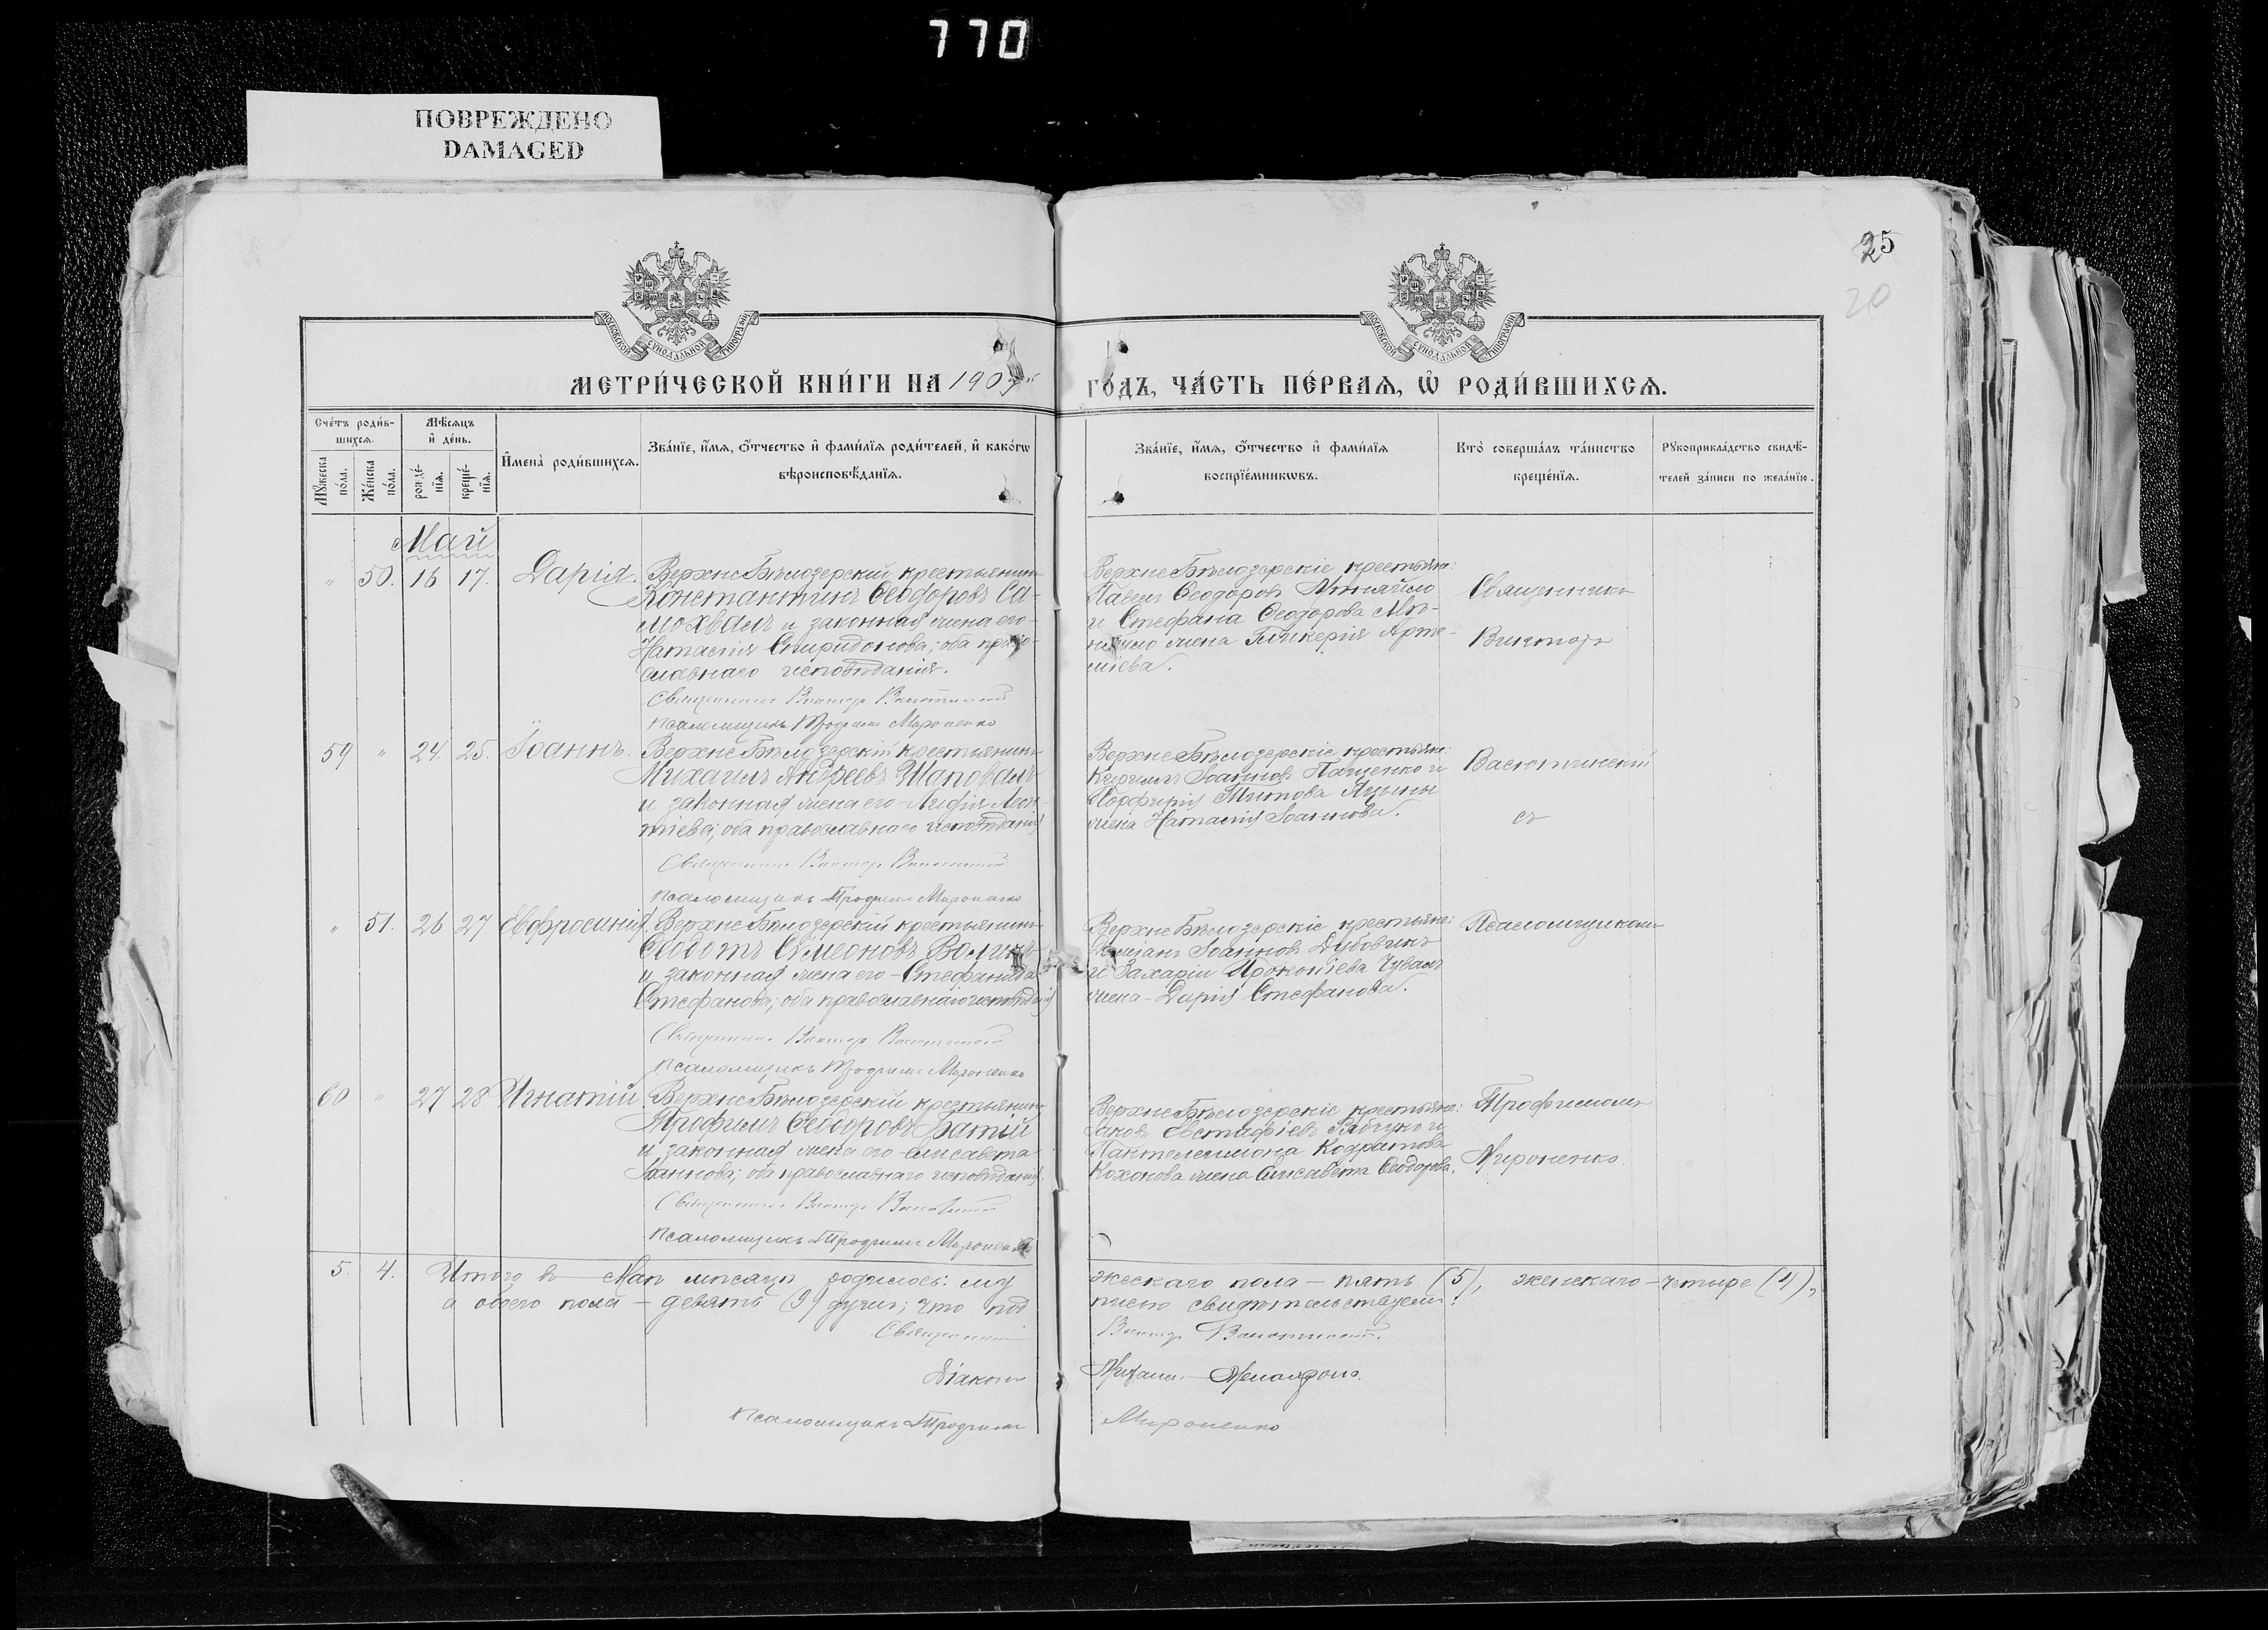 770
ПОВРЕЖДЕНО
DAMAGED
25
20
МОСКОВСКОЙ СУНОДАЛЬНОЙ ТИПОГРАФІИ
МОСКОВСКОЙ СУНОДАЛЬНОЙ ТИПОГРАФІИ
МЕТРИ́ЧЕСКОЙ КНИ́ГИ НА 190
ГО́ДЪ, ЧА́СТЬ ПЕ́РВАѦ, Ѡ҆ РОДИ́ВШИХСѦ.
Сче́тъ роди́в-
шихсѧ.
Мѣ́сѧцъ
и҆ де́нь.
Мꙋ́жеска по́ла.
Же́нска по́ла.
рожде́-
нїѧ.
креще́-
нїѧ.
И҆мена̀ роди́вшихсѧ.
Зва́нїе, и҆́мѧ, ѻ҆́тчество и҆ фами́лїѧ роди́телей, и҆ како́гѡ
вѣроисповѣ́данїѧ.
Зва́нїе, и҆́мѧ, ѻ҆́тчество и҆ фами́лїѧ
воспрїе́мникѡвъ.
Кто̀ соверша́лъ та́инство
креще́нїѧ.
Рꙋкоприкла́дство свидѣ́-
телей за́писи по жела́нїю.
Май
" 50. 16 17. Дарія. Верхне Бѣлозерскій крестьянинъ
Константинъ Ѳеодоровъ Са-
мохвалъ и законная жена его
Наталія Спиридонова; оба право-
славнаго исповѣданія.
Священникъ Викторъ Васютинскій
Псаломщикъ Трофимъ Мироненко
Верхне Бѣлозерскіе крестьяне:
Павелъ Ѳеодоровъ
и Стефана Ѳеодорова
жена Гликерія Арте-
міева.
Священникъ
Викторъ
59 " 24. 25. Іоаннъ. Верхне Бѣлозерскій крестьянинъ
Михаилъ Андреевъ Шаповалъ
и законная жена его Леон-
тіева; оба православнаго исповѣданія
Священникъ Викторъ Васютинскій
Псаломщикъ Трофимъ Мироненко
Верхне Бѣлозерскіе крестьяне:
Кириллъ Іоанновъ Пащенко и
Порфирія Титова
жена Наталія Іоаннова.
Васютинскій
съ
" 51. 26 27 Евфросинія. Верхне Бѣлозерскій крестьянинъ
Ѳеодотъ Симеоновъ
и законная жена его - Стефанида
Стефанова; оба православнаго исповѣданія
Священникъ Викторъ Васютинскій
Псаломщикъ Трофимъ Мироненко
Верхне Бѣлозерскіе крестьяне:
Іоанновъ Дубовикъ
и Захаріи Прокопіева Чувалъ
жена - Дарія Стефанова.
Псаломщикомъ
60 " 27 28 Игнатій Верхне Бѣлозерскій крестьянинъ
Трофимъ Ѳеодоровъ
и законная жена его Елисавета
Іоаннова; оба православнаго исповѣданія.
Священникъ Викторъ Васютинскій
Псаломщикъ Трофимъ Мироненко
Верхне Бѣлозерскіе крестьяне:
Іаковъ Евстафіевъ и
Пантелеимона Кодратова
жена Елисавета Ѳеодорова.
Трофимомъ
Мироненко.
5. 4. Итого въ Маѣ мѣсяцѣ родилось: му
жескаго пола - пять (5), женскаго - четыре (4),
а обоего пола - девять (9) душъ; что под
писью свидѣтельствуемъ:
Священникъ Викторъ Васютинскій.
Діаконъ Михаилъ
Псаломщикъ Трофимъ Мироненко